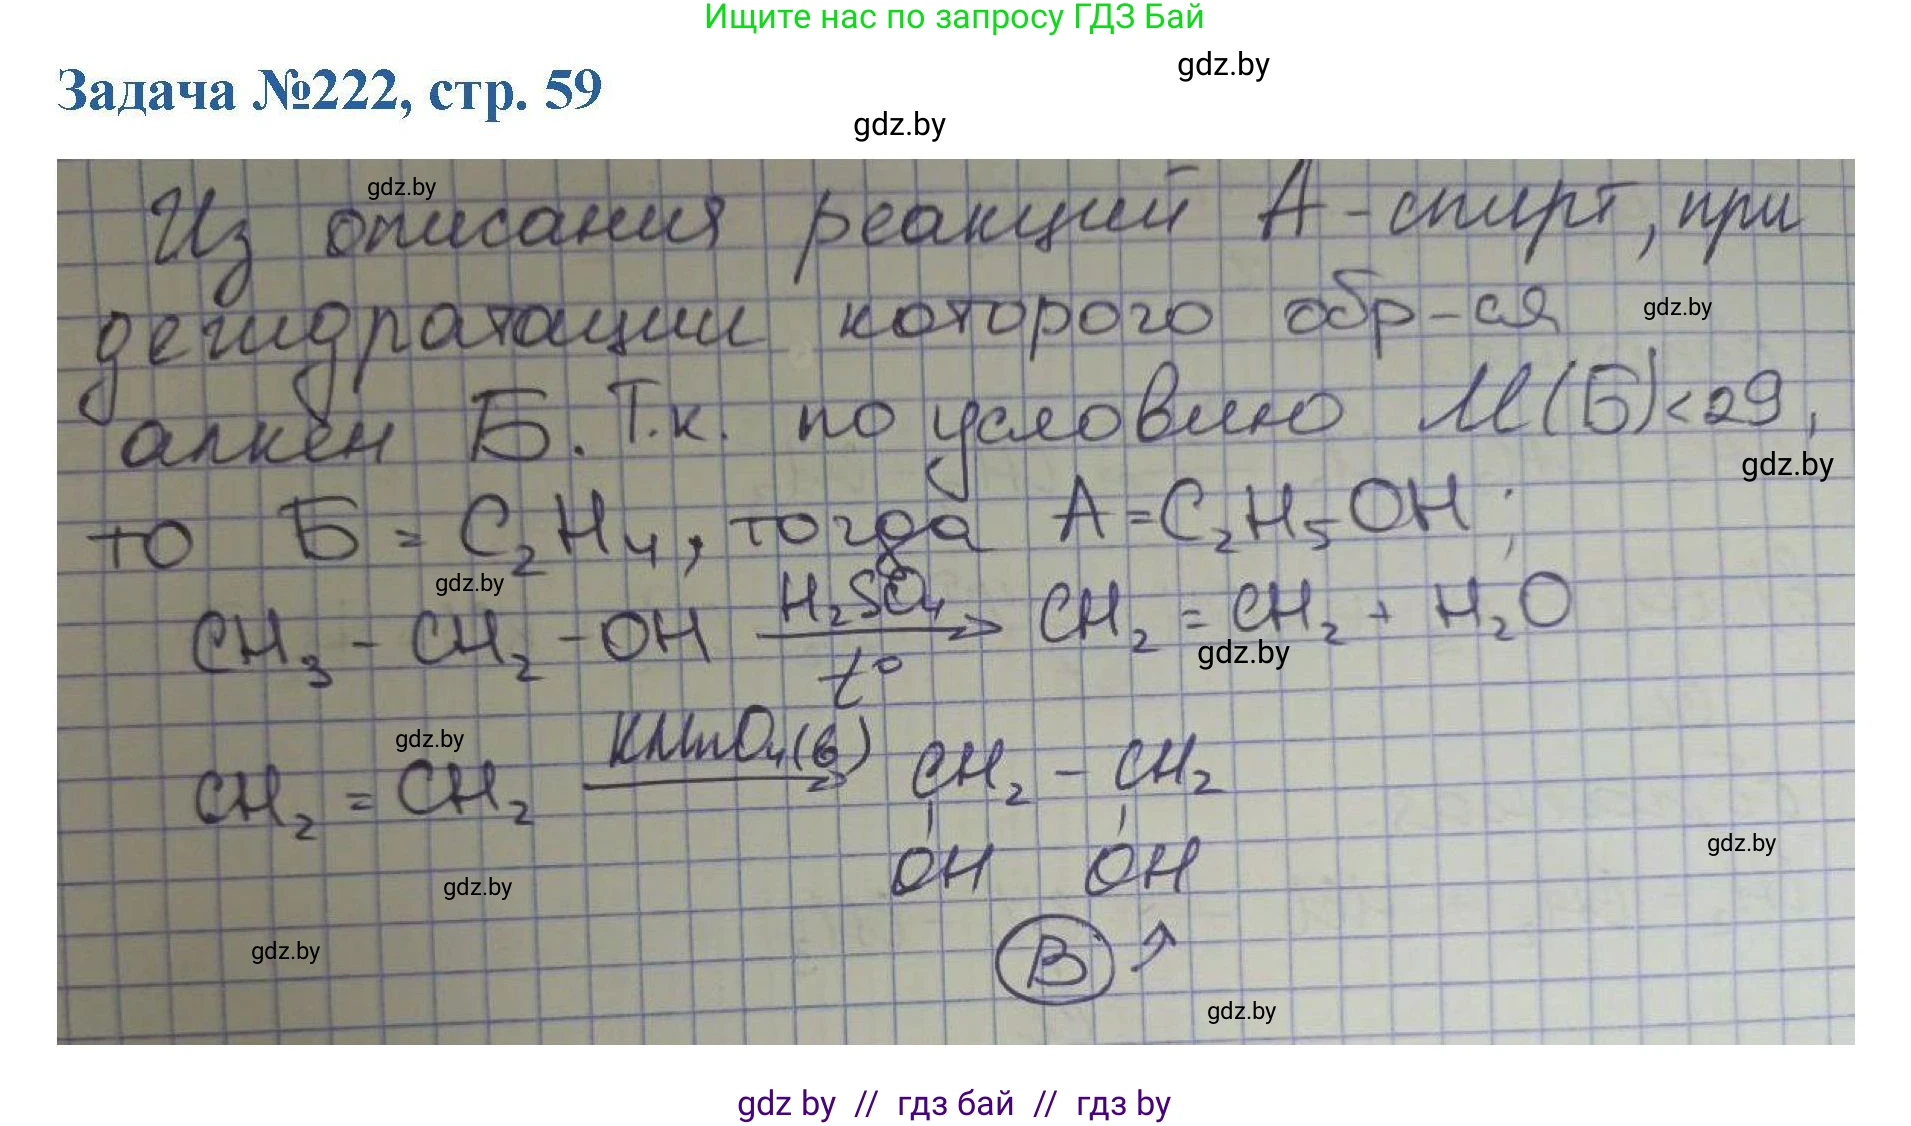 Ищите нас по запросу ГДЗ Бай
gdz.by
Задача №222, стр. 59
gdz.by
gdz.by
Из описания реакций А - спирт, при
дегидратации которого обр-ся
gdz.by
алкен Б. Т.к. по условию М(Б)<29,
gdz.by
то Б = C₂H₄, тогда А = C₂H₅OH;
gdz.by
CH₃ - CH₂ - OH H₂SO₄ t° → CH₂ = CH₂ + H₂O
gdz.by
gdz.by
CH₂ = CH₂ KMnO₄(в) → CH₂ - CH₂
gdz.by
OH OH
gdz.by
gdz.by
В ↗
gdz.by
gdz by // гдз бай // гдз by